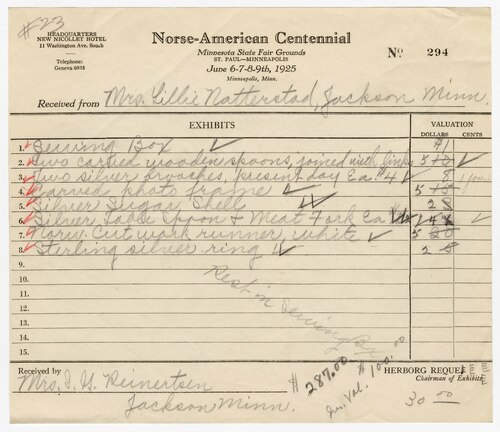 #23
HEADQUARTERS
NEW NICOLLET HOTEL
11 Washington Ave. South
Telephone:
Geneva 6935
Norse-American Centennial
Minnesota State Fair Grounds
ST. PAUL—MINNEAPOLIS
June 6-7-8-9th, 1925
Minneapolis, Minn.
No 294
Received from Mrs. Lillie Natterstad, Jackson Minn.
EXHIBITS VALUATION
DOLLARS CENTS
1. Sewing Box $1
2. Two carved wooden spoons, joined with links 5 10
3. Two silver brooches, present day Ea. $4 8
4. Carved photo frame 5 10
5. Silver Sugar Shell 2
6. Silver Table Spoon & Meat Fork Ea.
7. Norw. Cut work runner, white 5 20
8. Sterling silver ring 2 5
9.
10.
11.
12.
13.
14.
15.
Rest in Sewing Box
Received by
Mrs. S. H. Reinertsen
Jackson Minn.
$287.00
Ins. Val.
$100.00
HERBORG REQUE
Chairman of Exhibits
30 00